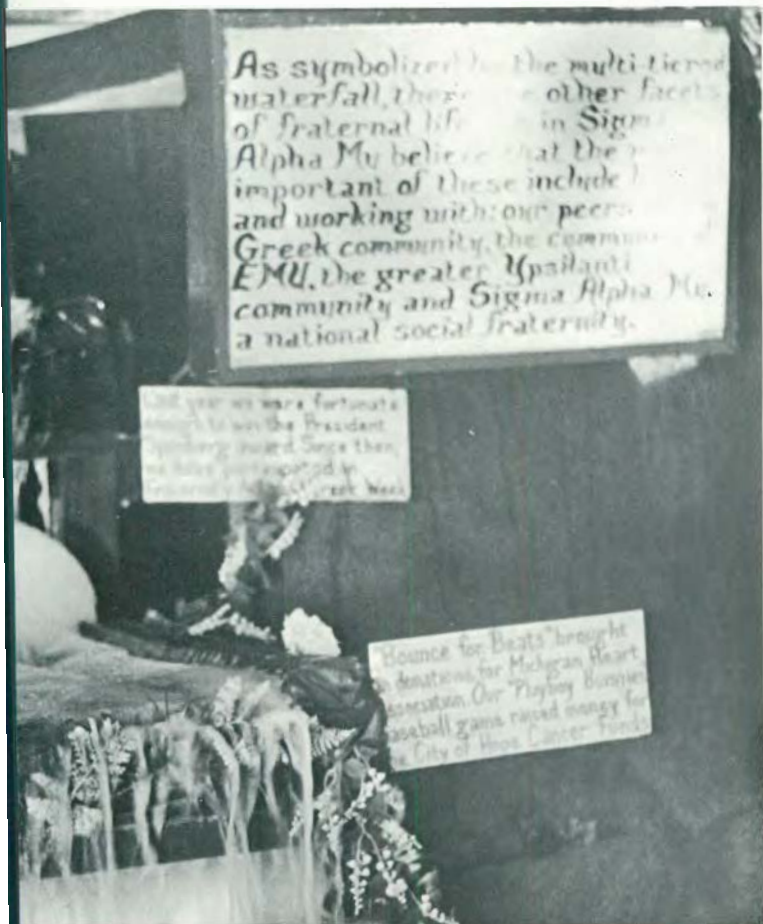 As symbolized by the multi-tiered
waterfall, there are other facets
of fraternal life in Sigma
Alpha Mu believe that the
important of these include
and working with: our peers
Greek community, the
EMU, the greater Ypsilanti
community and Sigma Alpha Mu,
a national social fraternity.
Last year we were fortunate
enough to win the President
Sponberg award. Since then,
we have participated in
Greek Week
"Bounce for Beats" brought
donations for Michigan Heart
Association. Our "Playboy Bunnies"
baseball game raised money for
City of Hope Cancer Funds